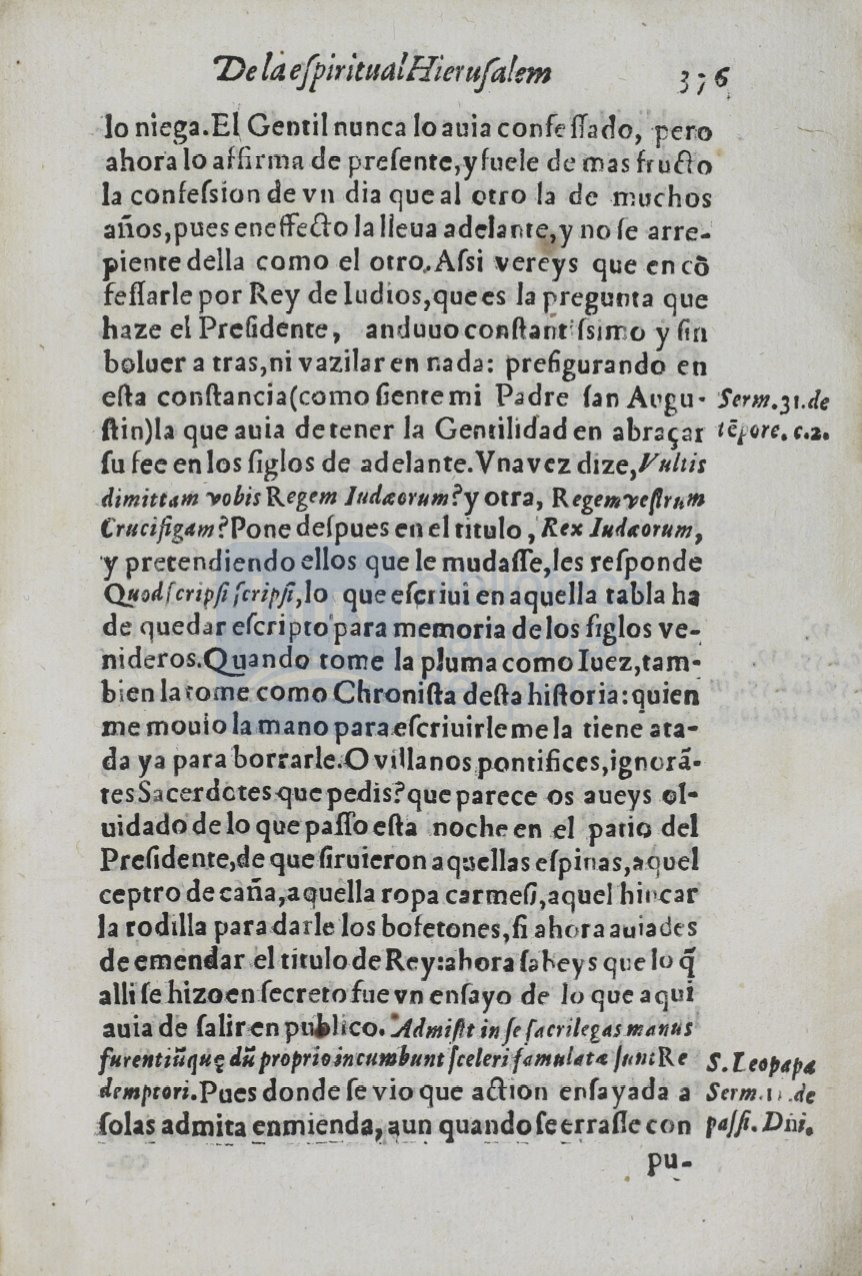 De la eſpiritual Hieruſalem 376
lo niega. El Gentil nunca lo auia confeſſado, pero
ahora lo affirma de preſente, y ſuele de mas fructo
la confeſsion de vn dia que al otro la de muchos
años, pues en effecto la lleua adelante, y no ſe arre-
piente della como el otro. Aſsi vereys que en cõ
feſſarle por Rey de Iudios, que es la pregunta que
haze el Preſidente, anduuo conſtantiſsimo y ſin
boluer a tras, ni vazilar en nada: prefigurando en
eſta conſtancia (como ſiente mi Padre ſan Augu-
ſtin) la que auia de tener la Gentilidad en abraçar
ſu fee en los ſiglos de adelante. Vna vez dize, Vultis
dimittam vobis Regem Iudæorum? y otra, Regem veſtrum
Crucifigam? Pone deſpues en el titulo, Rex Iudæorum,
y pretendiendo ellos que le mudaſſe, les reſponde
Quod ſcripſi ſcripſi, lo que eſcriui en aquella tabla ha
de quedar eſcripto para memoria de los ſiglos ve-
nideros. Quando tome la pluma como Iuez, tam-
bien la tome como Chroniſta deſta hiſtoria: quien
me mouio la mano para eſcriuirle me la tiene ata-
da ya para borrarle. O villanos pontifices, ignorã-
tes Sacerdotes que pedis? que parece os aueys ol-
uidado de lo que paſſo eſta noche en el patio del
Preſidente, de que ſiruieron aquellas eſpinas, aquel
ceptro de caña, aquella ropa carmeſi, aquel hincar
la rodilla para darle los bofetones, ſi ahora auiades
de emendar el titulo de Rey: ahora ſabeys que lo q̃
alli ſe hizo en ſecreto fue vn enſayo de lo que aqui
auia de ſalir en publico. Admiſit in ſe ſacrilegas manus
furentiũ quę dũ proprio incumbunt ſceleri famulatæ ſunt Re
demptori. Pues donde ſe vio que action enſayada a
ſolas admita enmienda, aun quando ſe erraſſe con
pu-
Serm. 31. de
tẽpore. c. 2.
S. Leo papa
Serm. 11. de
paſſi. Dñi.